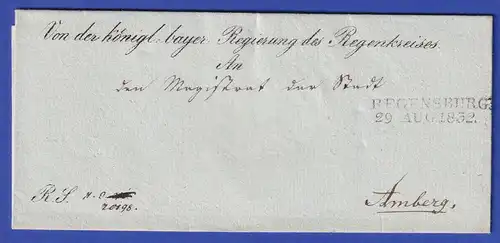 Von der königl. bayer. Regierung des Regenkreises.
An
den Magistrat der Stadt
REGENSBURG.
29 AUG.1832.
R. S.
20198.
Amberg.